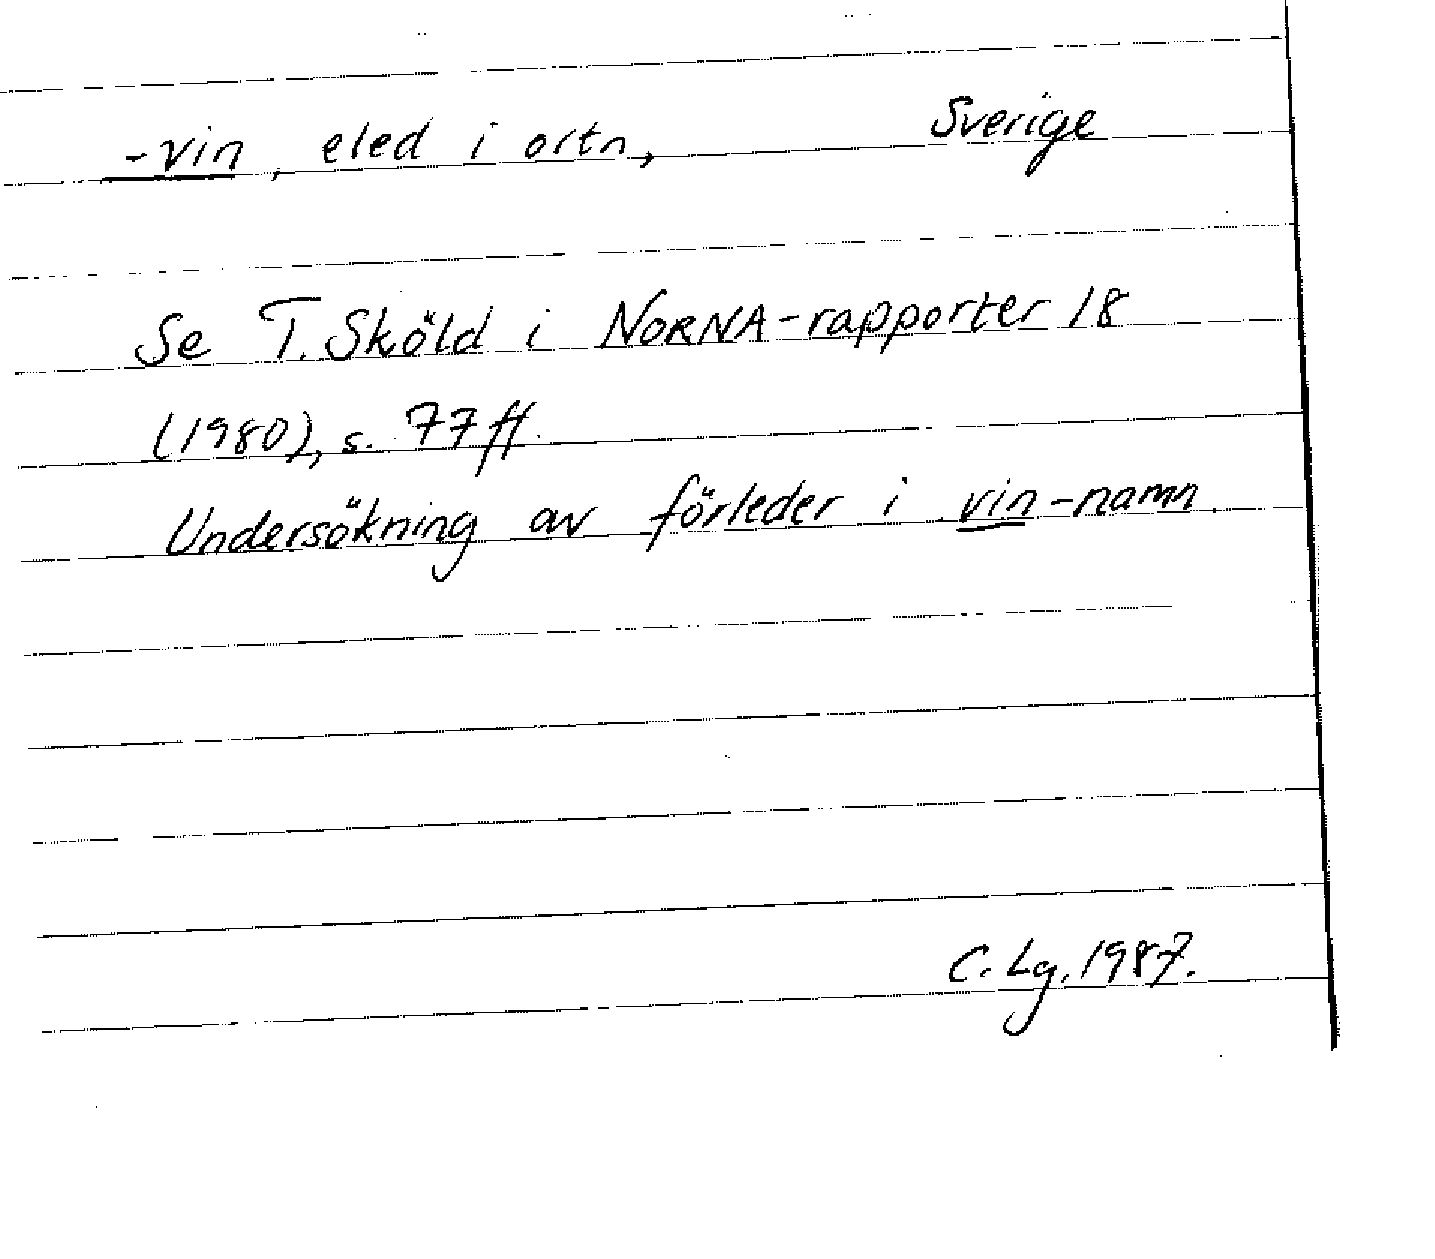 -vin, eled i ortn, Sverige
Se T. Sköld i NORNA-rapporter 18
(1980), s. 77 ff.
Undersökning av förleder i vin-namn.
C. Lg. 1987.